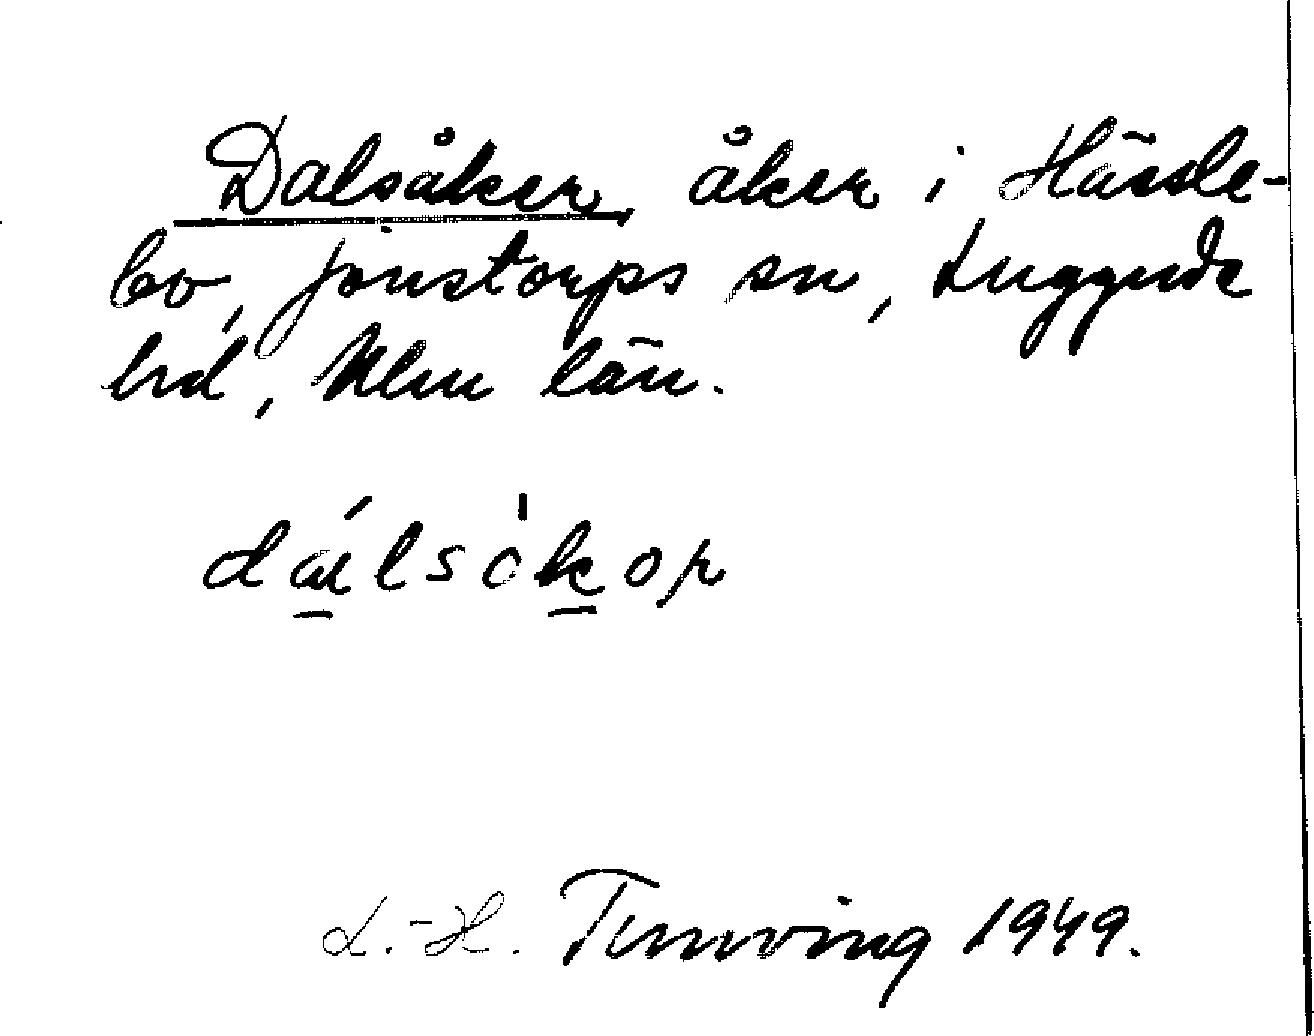 Dalsåker, åker i Hässle-
bo, Jonstorps sn, Luggude
hd, Mlm län.
dálsòkor
L.-H. Tunving 1949.